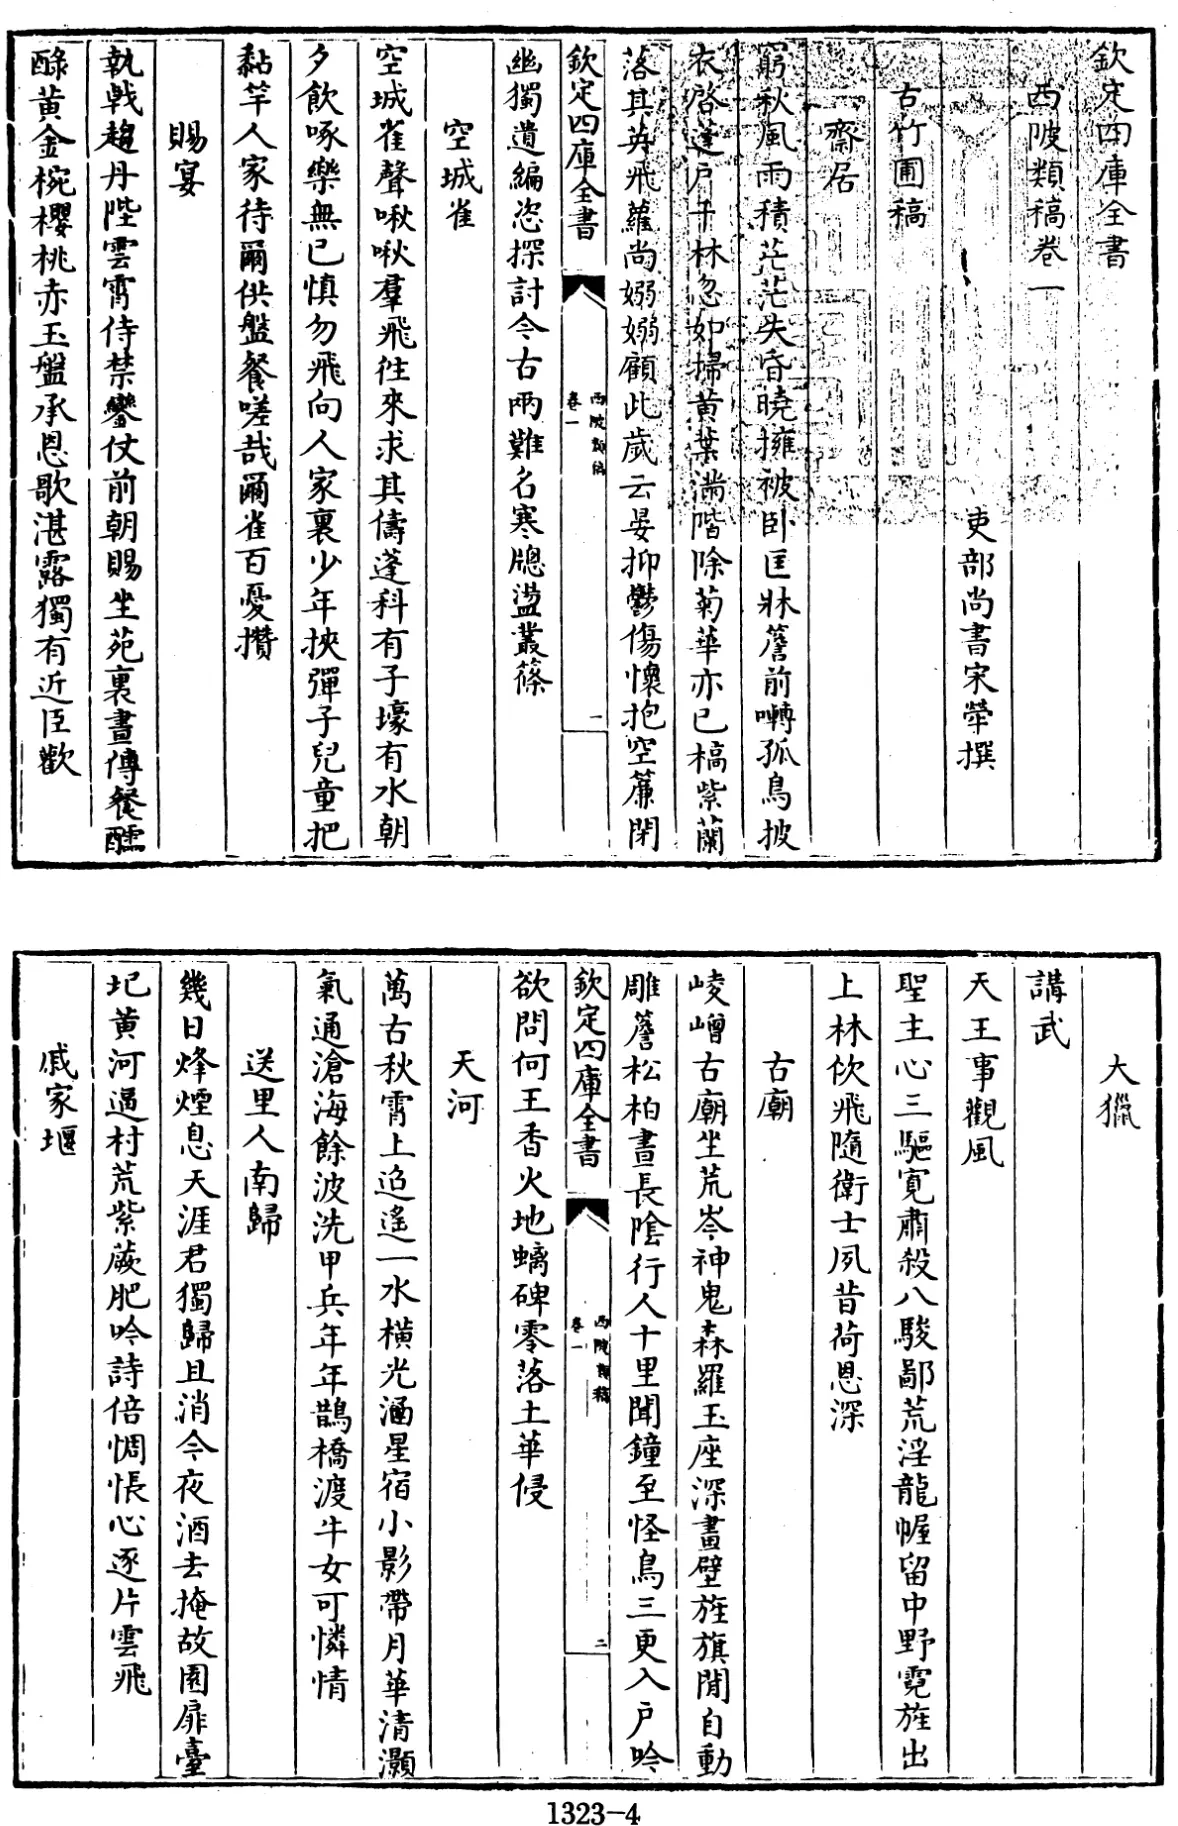 欽定四庫全書
西陂類稿卷一
吏部尚書宋犖撰
古竹圃稿
齋居
窮秋風雨積茫茫失昏曉擁被卧匡牀簷前囀孤鳥披
衣啓蓬戶千林忽如掃黄葉滿階除菊華亦已槁紫蘭
落其英飛蘿尚嫋嫋顧此歲云晏抑鬱傷懷抱空簾閉
欽定四庫全書
西陂類稿
卷一
一
幽獨遺編恣探討今古兩難名寒牕盪叢篠
空城雀
空城雀聲啾啾羣飛徃來求其儔蓬科有子壕有水朝
夕飲啄樂無已慎勿飛向人家裏少年挾彈子兒童把
黏竿人家待爾供盤餐嗟哉爾雀百憂攢
賜宴
執戟趨丹陛雲霄侍禁鑾仗前朝賜坐苑裏晝傳餐醽
醁黄金椀櫻桃赤玉盤承恩歌湛露獨有近臣歡
大獵
講武
天王事觀風
聖主心三驅寛肅殺八駿鄙荒淫龍幄留中野霓旌出
上林佽飛隨衛士夙昔荷恩深
古廟
崚嶒古廟坐荒岑神鬼森羅玉座深畫壁旌旗閒自動
雕簷松柏晝長陰行人十里聞鐘至怪鳥三更入户吟
欽定四庫全書
西陂類稿
卷一
二
欲問何王香火地螭碑零落土華侵
天河
萬古秋霄上迢遥一水横光涵星宿小影帶月華清灝
氣通滄海餘波洗甲兵年年鵲橋渡牛女可憐情
送里人南歸
幾日烽煙息天涯君獨歸且消今夜酒去掩故園扉臺
圮黄河逼村荒紫蕨肥吟詩倍惆悵心逐片雲飛
戚家堰
1323-4